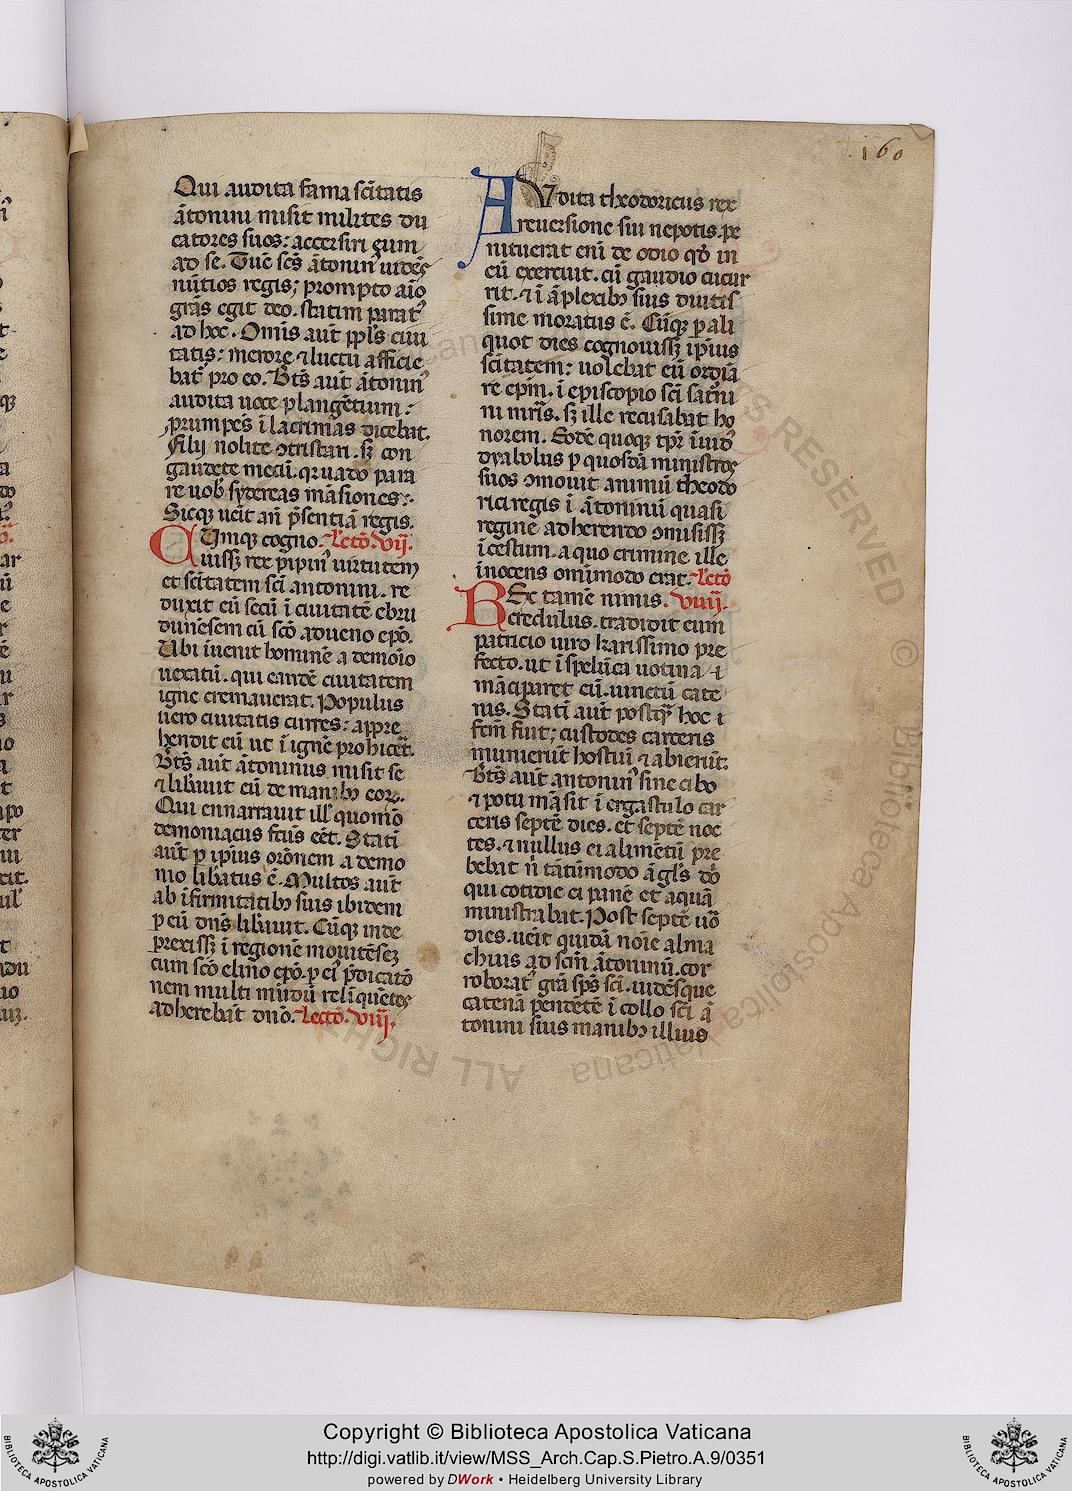 .160
Qui audita fama sc̄itatis
ātonini misit milites du
catores suos: accersiri eum
ad se. Tūc sc̄s ātonin᾽ uidēs
nūtios regis; prompto aīo
grās egit deo. statim parat᾽
ad hec. Omīs aūt ppl̄s ciui
tatis: merore ⁊ luctu afficie
bat᾽ pro eo. Bt̄s aūt ātonin᾽
audita uoce plangētium:
prumpēs ī lacrimas dicebat.
Filij nolite ꝯtristari. sꝫ con
gaudete mecū. qr uado para
re uob̄ sydereas māsiones:
Sicqꝫ ueīt añ p̄sentiā regis.
CUmqꝫ cogno. Lectō. vij.
uissꝫ rex pipin᾽ uirtutem
et sc̄itatem sc̄i antonini. re
duxit eū secū ī ciuitatē ebru
dunēsem cū sc̄o adueno ep̄o.
Ubi īuenit hominē a demoīo
uexatū. qui eandē ciuitatem
igne cremauerat. Populus
uero ciuitatis currēs: appre
hendit eū ut ī ignē prohicēt.
Bt̄s aūt ātoninus misit se
⁊ lib̄auit eū de manibꝫ eoꝝ.
Qui ennarrauit ill̄ quomō
demoniacus fc̄us eēt. Statī
aūt p ip̄ius orōnem a demo
nio lib̄atus ē. Multos aūt
ab īfirmitatibꝫ suis ibidem
p eū dn̄s lib̄auit. Cūqꝫ inde
prexissꝫ ī regionē mouitēseꝫ
cum sc̄o elino ep̄o. p ei᾽ p̄dicatō
nem multi mūdū relīquētes
adherebāt dn̄o. Lectō. viij.
AVdita theodoricus rex
reuersione sui nepotis. pe
nituerat enī de odio qd̄ in
eū exercuit. cū gaudio cucur
rit. ⁊ ī āplexibꝫ suis diutis
sime moratus ē. Cūqꝫ p ali
quot dies cognouissꝫ ip̄ius
sc̄itatem: uolebat eū ordīa
re ep̄m. ī episcopio sc̄i sat̄ni
ni mr̄is. sꝫ ille recusabat ho
norem. Eodē quoqꝫ tp̄r īuid᾽
dyabolus p quosdā ministros
suos ꝯmouit animū theodo
rici regis ī ātoninū quasi
regine adherendo ꝯmisissꝫ
īcestum. a quo crimine ille
īnocens omīmodo erat. Lectō
REx tamē nimis. viiij.
credulus. tradidit eum
patricio uiro karissimo pre
fecto. ut ī spelūca uotina
māciparet eū. uinctū cate
nis. Statī aūt postqꝫ hoc ī
fc̄m fuit; custodes carceris
munierūt hostiū ⁊ abierūt.
Bt̄s aūt antonin᾽ sine cibo
⁊ potu māsit ī ergastulo car
ceris septē dies. et septē noc
tes. ⁊ nullus ei alimētū pre
bebat n̄ tātūmodo āgl̄s dō
qui cotidie ei panē et aquā
ministrabat. Post septē uō
dies. ueīt quidā noīe alma
chius ad sc̄m ātoninū. cor
roborat᾽ grā sp̄s sc̄i. uidēsque
catenā pendētē ī collo sc̄i ā
tonini suis manibꝫ illius
Copyright © Biblioteca Apostolica Vaticana
http://digi.vatlib.it/view/MSS_Arch.Cap.S.Pietro.A.9/0351
powered by DWork • Heidelberg University Library
BIBLIOTECA APOSTOLICA VATICANA
BIBLIOTECA APOSTOLICA VATICANA
ALL RIGHTS RESERVED © Biblioteca Apostolica Vaticana